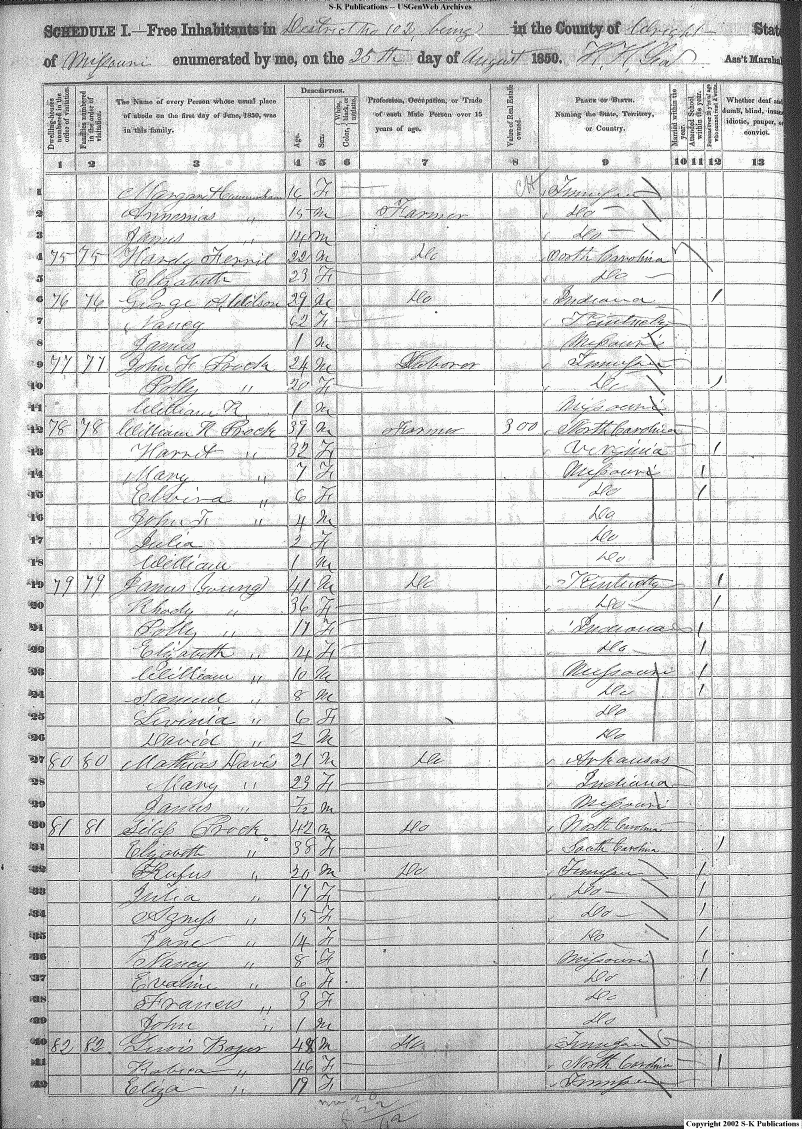 S-K Publications -- USGenWeb Archives
SCHEDULE I.—Free Inhabitants in District No 102 being in the County of Wright State
of Missouri enumerated by me, on the 25th day of August 1850. Ass't Marshal
Dwelling-houses numbered in the order of visitation.
Families numbered in the order of visitation.
The Name of every Person whose usual place of abode on the first day of June, 1850, was in this family.
Description.
Age.
Sex.
Color, White, black, or mulatto.
Profession, Occupation, or Trade of each Male Person over 15 years of age.
Value of Real Estate owned.
Place of Birth. Naming the State, Territory, or Country.
Married within the year.
Attended School within the year.
Persons over 20 y'rs of age who cannot read & write.
Whether deaf and dumb, blind, insane, idiotic, pauper, or convict.
1 2 3 4 5 6 7 8 9 10 11 12 13
1 Margaret Cunningham 16 F Tennessee
2 " 15 M Farmer Do
3 James " 14 M Do
4 75 75 Hardy 22 M Do North Carolina
5 Elizabeth 23 F Do
6 76 76 George Wilson 29 M Do Indiana 1
7 Nancy 62 F Kentucky
8 James 1 M Missouri
9 77 77 John F. Prock 24 M Laborer Tennessee
10 Polly " 20 F Do 1
11 William R 1 M Missouri
12 78 78 William R Prock 39 M Farmer 300 North Carolina
13 Harriet " 32 F Virginia 1
14 Mary " 7 F Missouri 1
15 Elvira " 6 F Do 1
16 John F " 4 M Do
17 Julia 2 F Do
18 William 1 M Do
19 79 79 James Young 41 M Do Kentucky 1
20 Rhody " 36 F Do 1
21 Polly " 17 F Indiana 1
22 Elizabeth " 14 F Do 1
23 William " 10 M Missouri 1
24 Samuel " 8 M Do 1
25 Livinia " 6 F Do
26 David " 2 M Do
27 80 80 Mathias Davis 21 M Do Arkansas
28 Mary " 23 F Indiana
29 James " 7/12 M Missouri
30 81 81 Silas Prock 42 M Do North Carolina
31 Elizabeth " 38 F South Carolina 1
32 Rufus " 20 M Do Tennessee 1
33 Julia " 17 F Do 1
34 Agness " 15 F Do 1
35 Jane " 14 F Do 1
36 Nancy " 8 F Missouri 1
37 Evaline " 6 F Do 1
38 Francis " 3 F Do
39 John " 1 M Do
40 82 82 Lewis 48 M Do Tennessee
41 " 46 F North Carolina 1
42 Eliza " 19 F Tennessee
Copyright 2002 S-K Publications